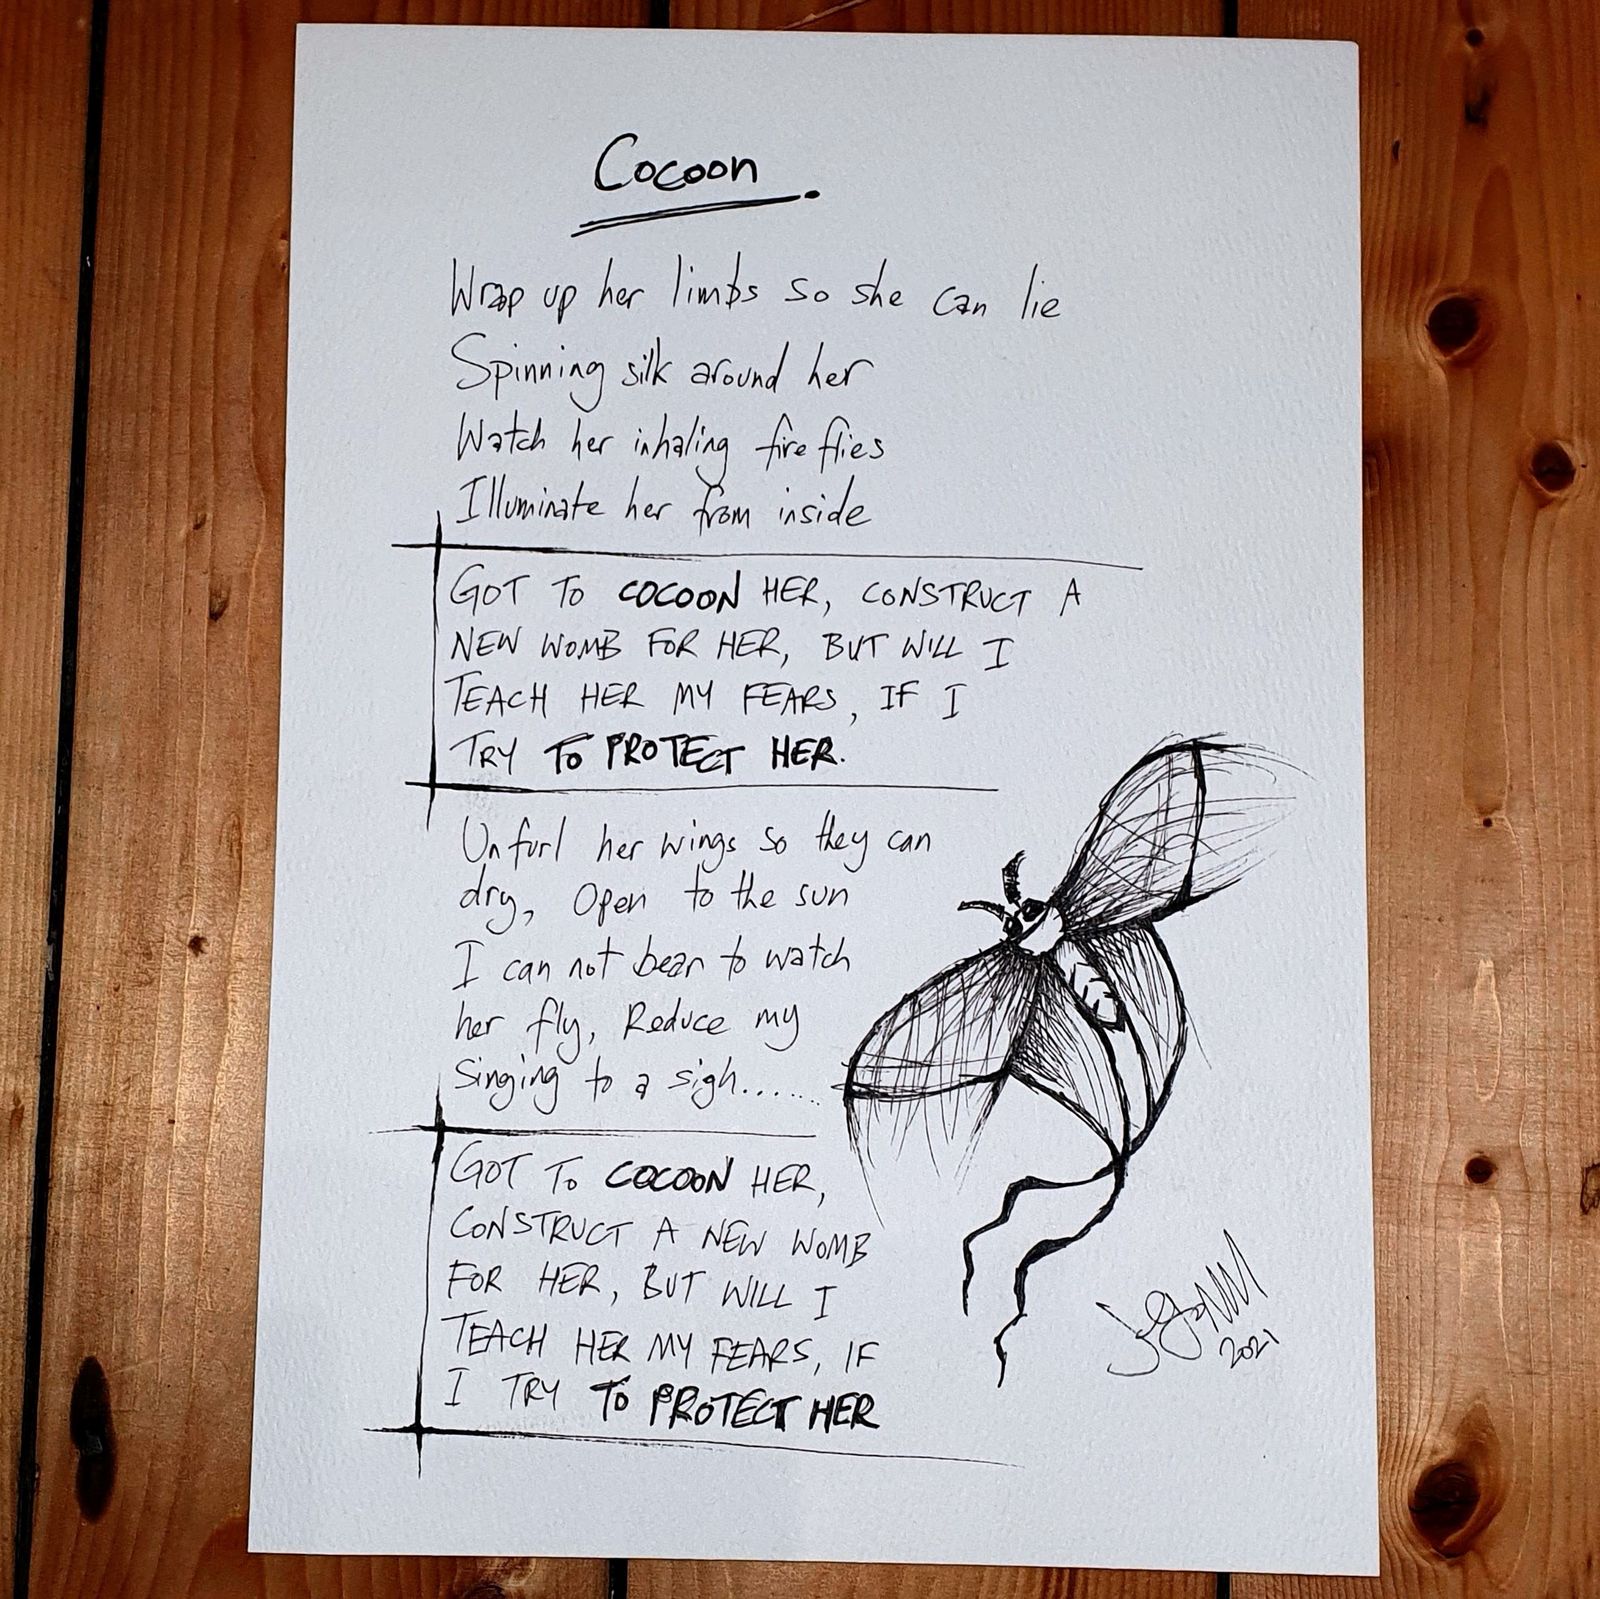 Cocoon
Wrap up her limbs so she can lie
Spinning silk around her
Watch her inhaling fireflies
Illuminate her from inside
GOT TO COCOON HER, CONSTRUCT A
NEW WOMB FOR HER, BUT WILL I
TEACH HER MY FEARS, IF I
TRY TO PROTECT HER.
Unfurl her wings so they can
dry, Open to the sun
I can not bear to watch
her fly, Reduce my
singing to a sigh.......
GOT TO COCOON HER,
CONSTRUCT A NEW WOMB
FOR HER, BUT WILL I
TEACH HER MY FEARS, IF
I TRY TO PROTECT HER
2021